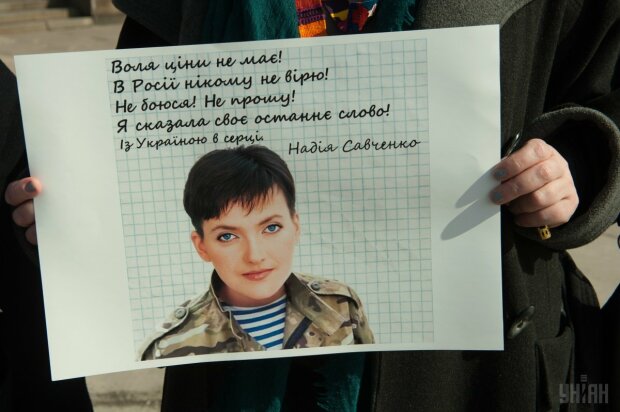 Воля ціни не має!
В Росії нікому не вірю!
Не боюся! Не прошу!
Я сказала своє останнє слово!
Із Україною в серці.
Надія Савченко
УНІАН